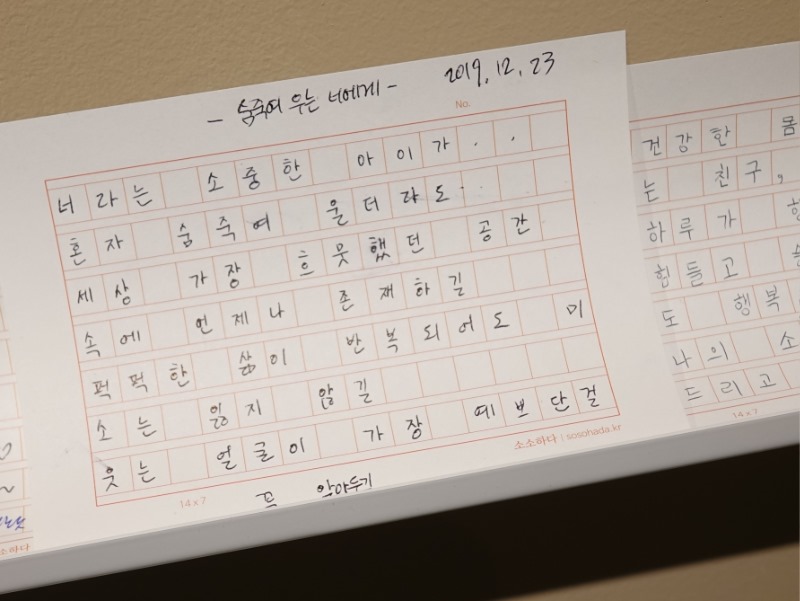 - 숨죽여 우는 너에게 - 2019. 12. 23
No.
너라는 소중한 아이가..
혼자 숨죽여 울더라도.
세상 가장 흐뭇했던 공간
속에 언제나 존재하길
퍽퍽한 삶이 반복되어도 미
소는 잃지 않길
웃는 얼굴이 가장 예쁘단걸
꼭 알아두기
14 x 7 소소하다 | sosohada.kr
건강한 몸
는 친구,
하루가
힘들고
도 행복
나의 소
드리고
14 x 7
소하다